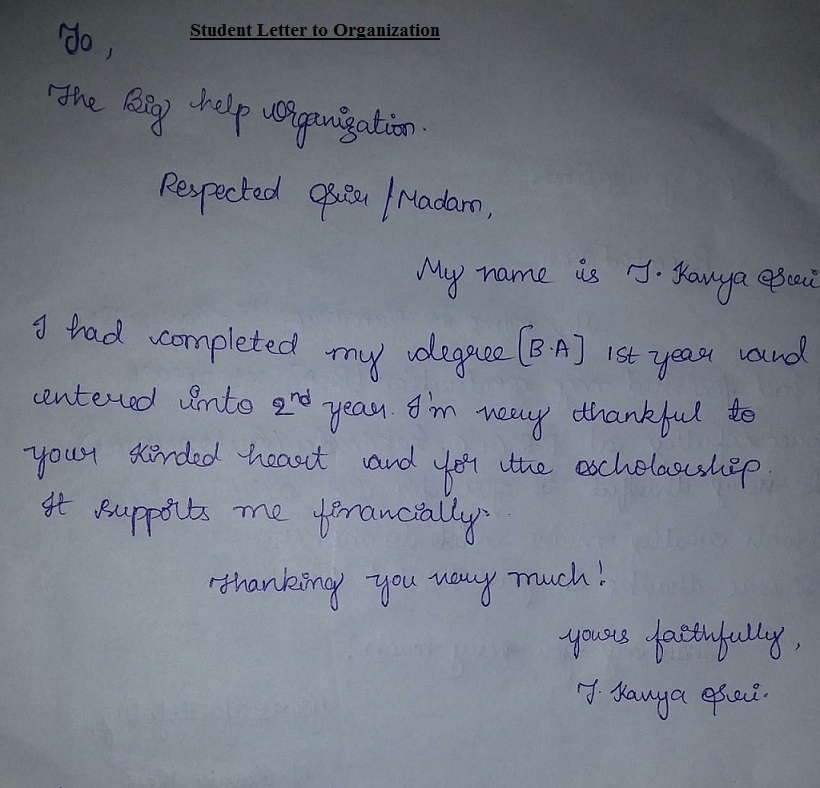 Student Letter to Organization
To,
The Big help organization.
Respected Sir/Madam,
My name is T. Kavya Sri
I had completed my degree [B.A] 1st year and
entered into 2nd year. I'm very thankful to
your kinded heart and for the scholarship.
It supports me financially.
Thanking you very much!
yours faithfully,
T. Kavya Sri.